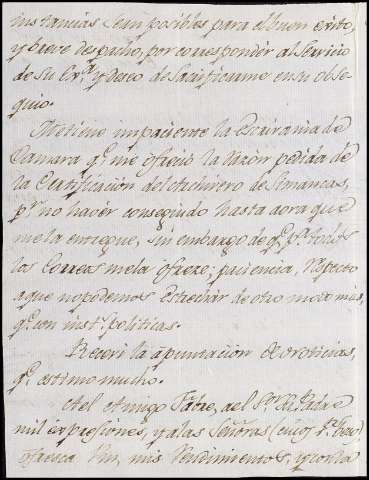 instancias sean posibles para el buen exito,
y breve despacho, por corresponder al Servicio
de Su Ex.ª y deseo de Sacrificarme en su obse-
quio.
Me tiene impaciente la Escrivania de
Camara q.e me ofreció la razón pedida de
la Certificación del Archivero de Simancas,
p.r no havér conseguido hasta aora que
me la entregue, sin embargo de q.e p.r todos
los Correos me la ofreze; paciencia, respecto
a que no podemos estrechár de otro modo más,
q.e con inst.s politicas.
Reciví la apuntación de noticias,
q.e estimo mucho.
Al Amigo
mil expresiones, y a las Señoras
ofrezca Vm, mis rendimientos, y